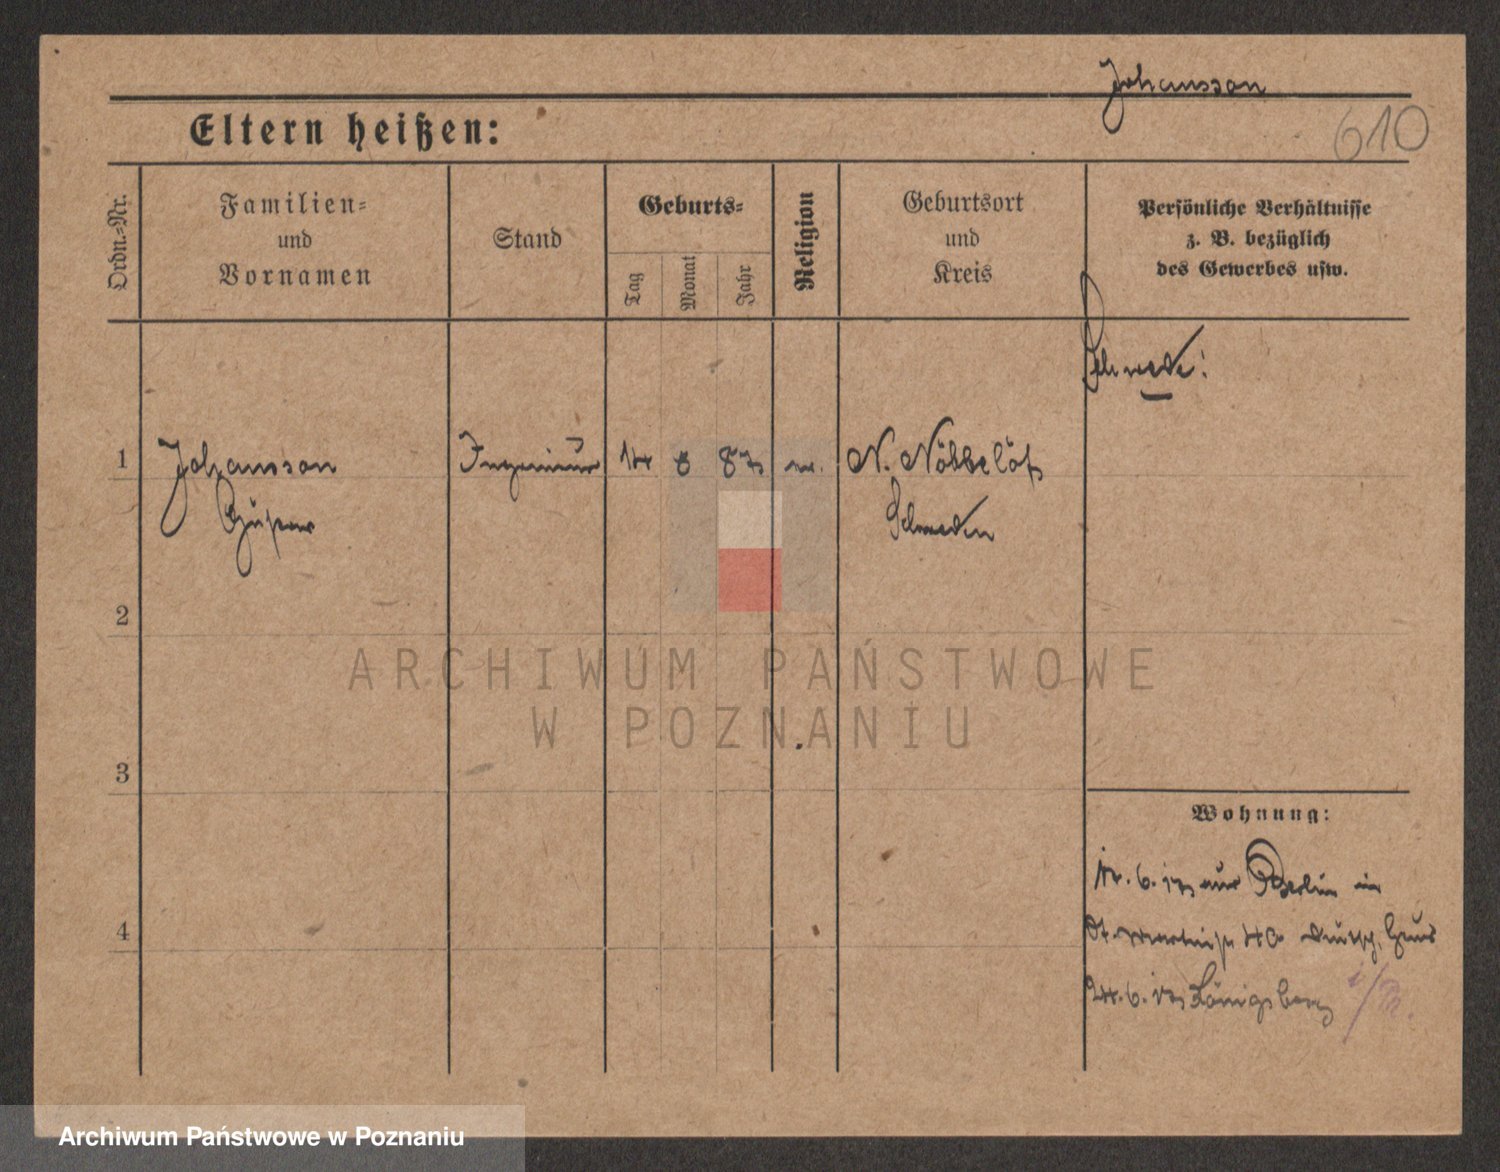 Johansson
610
Eltern heißen:
Ordn.-Nr.
Familien-
und
Vornamen
Stand
Geburts-
Tag
Monat
Jahr
Religion
Geburtsort
und
Kreis
Persönliche Verhältnisse
z. B. bezüglich
des Gewerbes usw.
Schwede!
1 Johansson Ingenieur 14 8 87 N. Nöbbelöf
Gustav Schweden
2
3
4
Wohnung:
14.6.17 aus Berlin in
St. Martinstr 40 Deutsch. Haus
24.6.17 Königsberg i/Pr.
ARCHIWUM PAŃSTWOWE
W POZNANIU
Archiwum Państwowe w Poznaniu